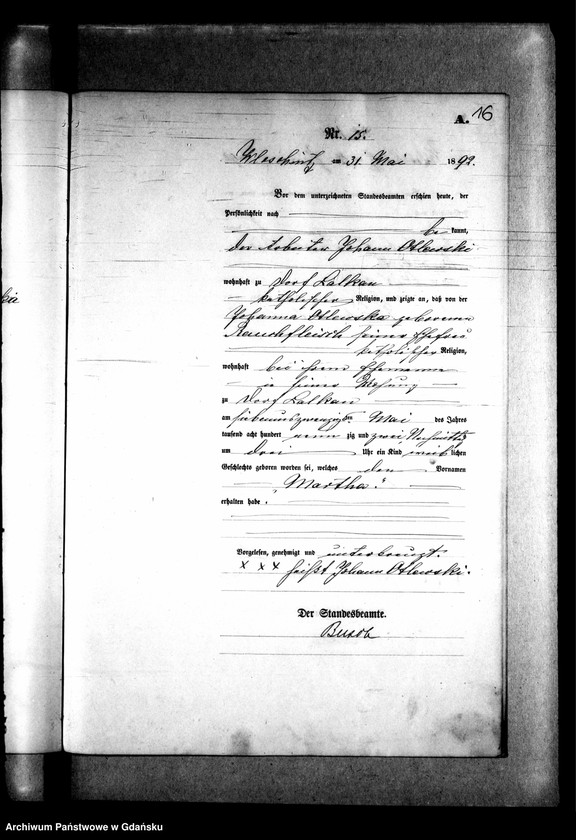 A. 16
Nr. 15.
am 31 Mai 1892.
Vor dem unterzeichneten Standesbeamten erschien heute, der
Persönlichkeit nach
be kannt,
der Arbeiter Johann Otlewski
wohnhaft zu Dorf Lalkau
katholischer Religion, und zeigte an, daß von der
Johanna Otlewska geborenen
Rauchfleisch seiner Ehefrau
katholischer Religion,
wohnhaft bei ihrem Ehemanne
in seiner Wohnung
zu Dorf Lalkau
am siebenundzwanzigsten Mai des Jahres
tausend acht hundert neun zig und zwei Nachmittags
um drei Uhr ein Kind weib lichen
Geschlechts geboren worden sei, welches den Vornamen
„Martha."
erhalten habe.
Vorgelesen, genehmigt und unterkreuzt.
x x x heißt Johann Otlewski.
Der Standesbeamte.
Archiwum Państwowe w Gdańsku